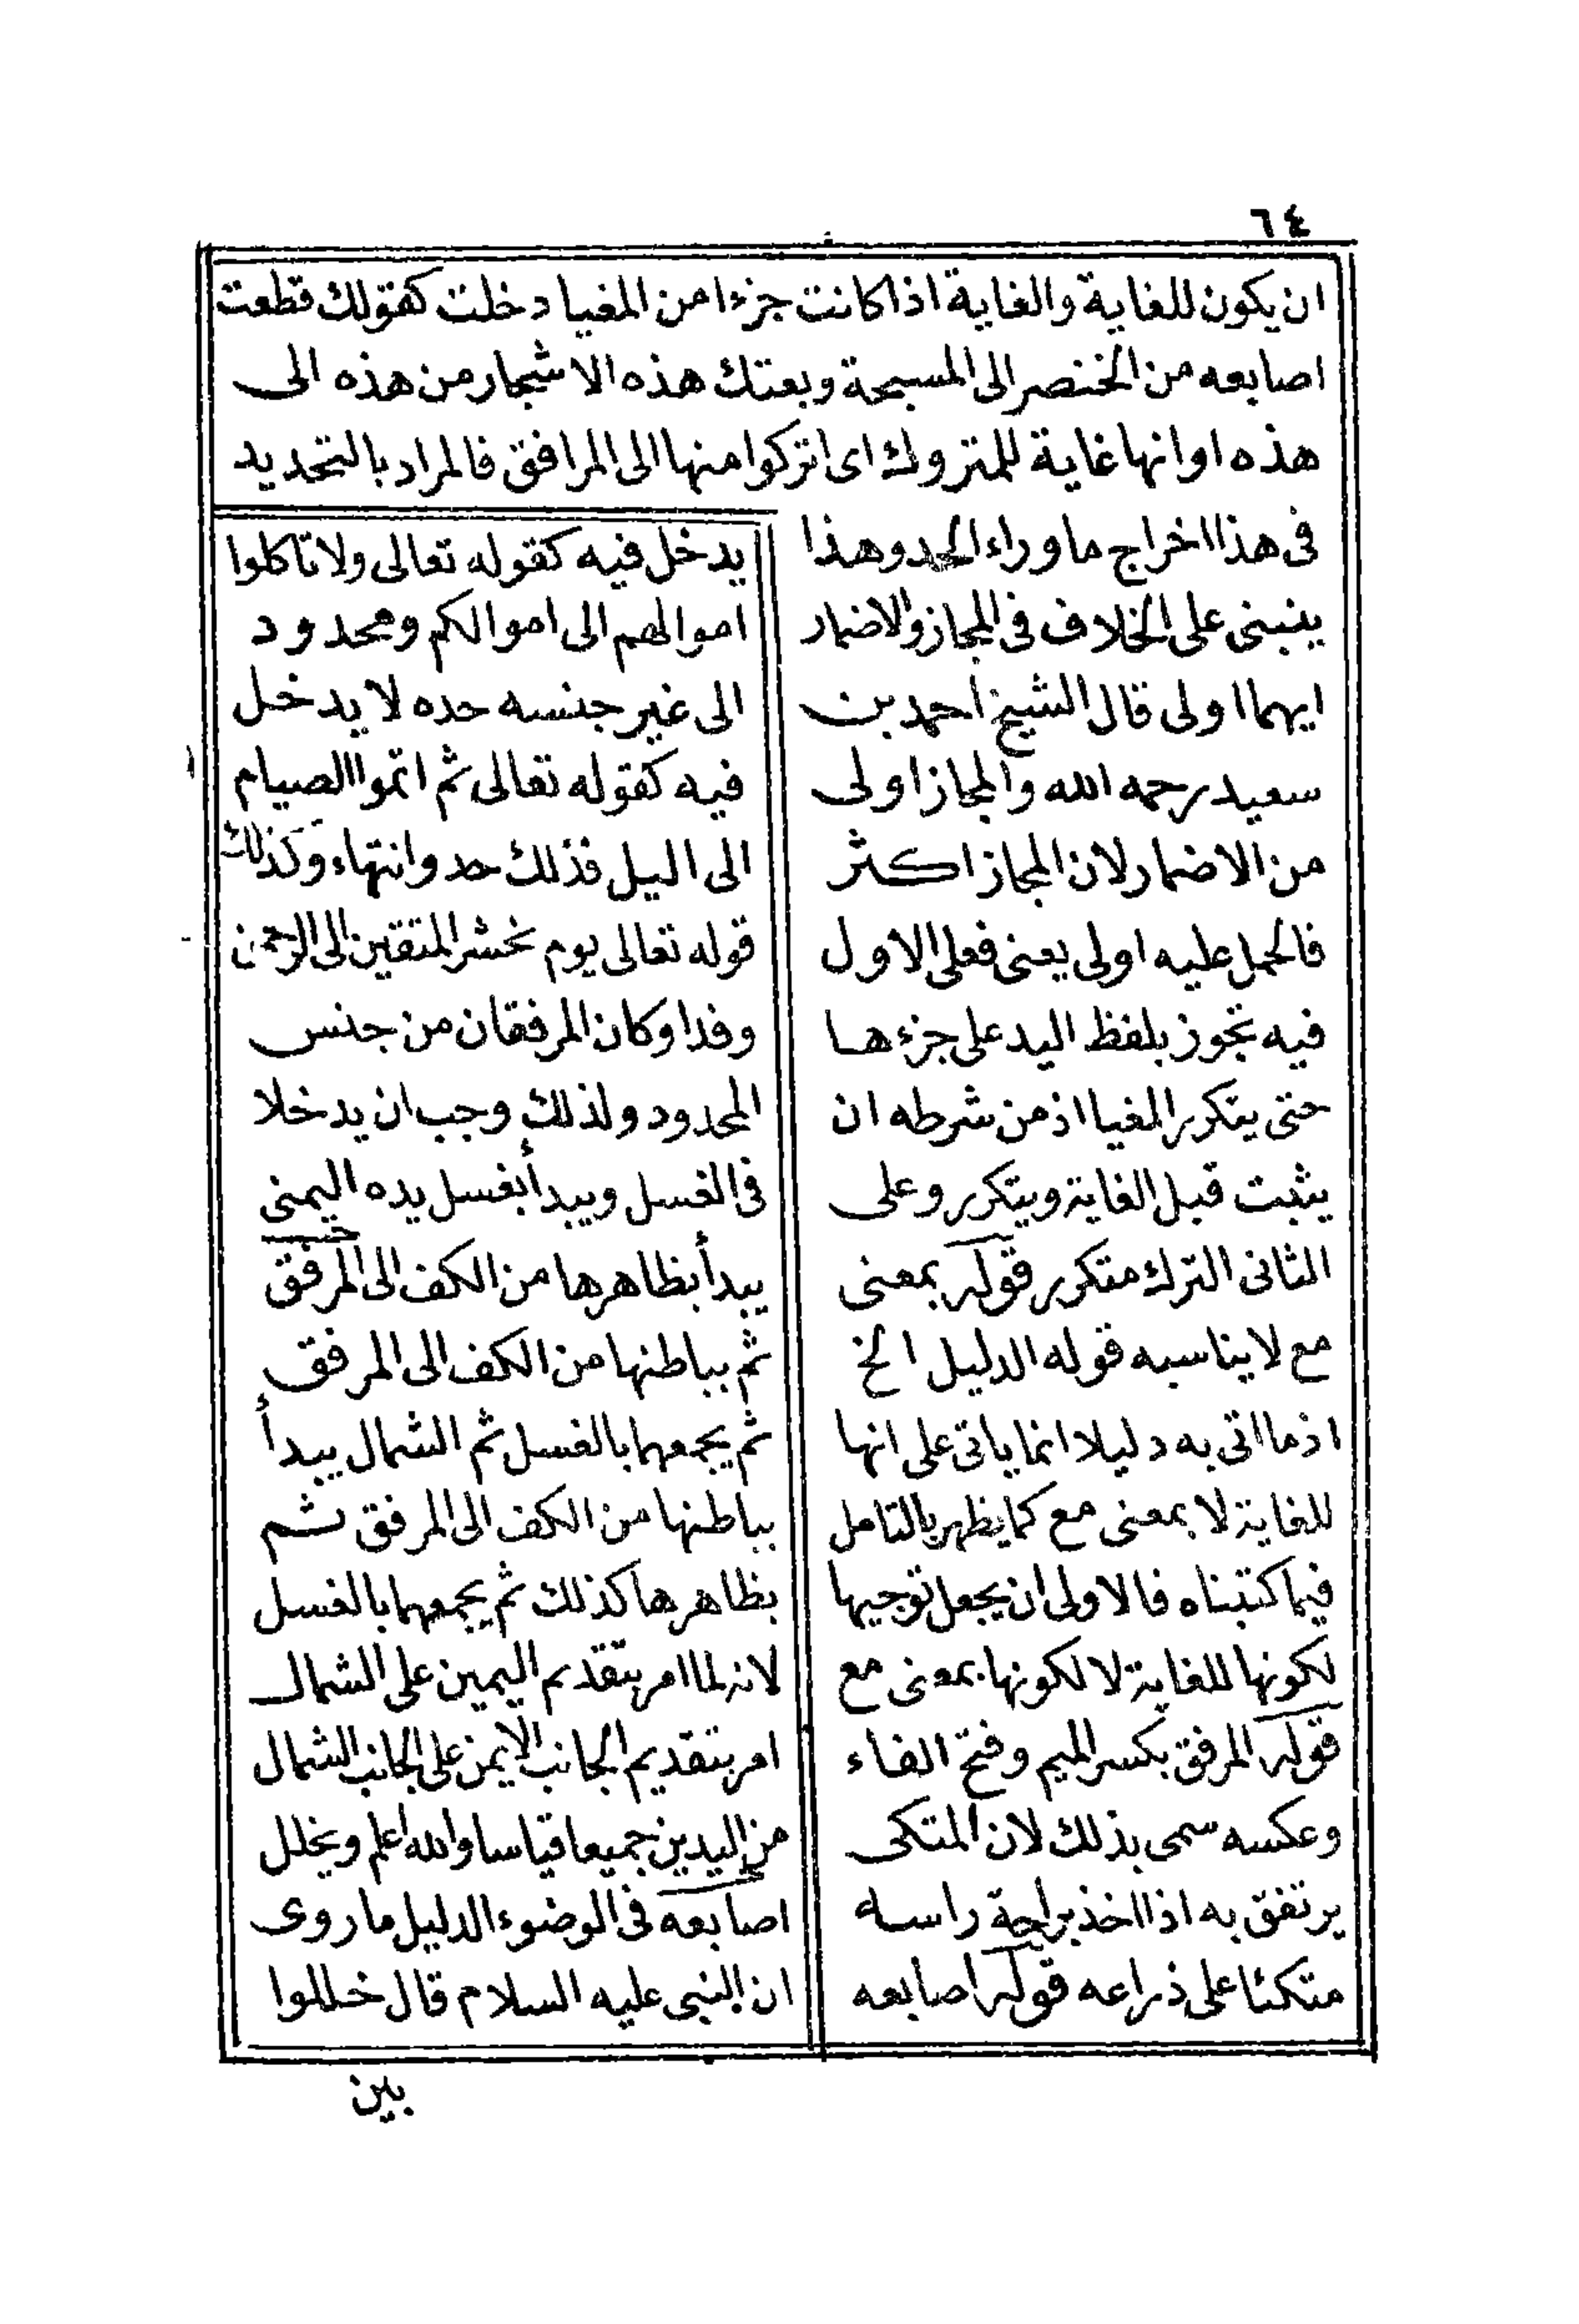 ٦٤
ان يكون للغاية والغاية اذا كانت جزءا من المغيا دخلت كقولك قطعت
اصابعه من الخنصر الى المسبحة وبعتك هذه الاشجار من هذه الى
هذه او انها غاية للمتروك اى اتركوا منها الى المرافق فالمراد بالتحديد
فى هذا اخراج ما وراء الحد وهذا
ينبنى على الخلاف فى المجاز والاضمار
ايهما اولى قال الشيخ احمد بن
سعيد رحمه الله والمجاز اولى
من الاضمار لان المجاز اكثر
فالحمل عليه اولى يعنى فعلى الاول
فيه تجوز بلفظ اليد على جزءها
حتى يتكرر المغيا اذ من شرطه ان
يثبت قبل الغاية ويتكرر وعلى
الثانى الترك متكرر قوله بمعنى
مع لا يناسبه قوله الدليل الخ
اذ ما اتى به دليلا انما ياتى على انها
للغاية لا بمعنى مع كما يظهر بالتامل
فيما كتبناه فالاولى ان يجعل توجيها
لكونها للغاية لا لكونها بمعنى مع
قوله المرفق بكسر الميم وفتح الفاء
وعكسه سمى بذلك لان المتكى
يرتفق به اذا اخذ براحة راسه
متكئا على ذراعه قوله اصابعه
يدخل فيه كقوله تعالى ولا تاكلوا
اموالهم الى اموالكم ومحدود
الى غير جنسه حده لا يدخل
فيه كقوله تعالى ثم اتموا الصيام
الى اليل فذلك حد وانتهاء وكذلك
قوله تعالى يوم نحشر المتقين الى الرحمن
وفدا وكان المرفقان من جنس
المحدود ولذلك وجب ان يدخلا
فى الغسل ويبدأ بغسل يده اليمنى
يبدأ بظاهرها من الكف الى المرفق
ثم بباطنها من الكف الى المرفق
ثم يجمعهما بالغسل ثم الشمال يبدأ
بباطنها من الكف الى المرفق ثم
بظاهرها كذلك ثم يجمعهما بالغسل
لانه لما امر بتقديم اليمين على الشمال
امر بتقديم الجانب الايمن على الجانب الشمال
من اليدين جميعا قياسا والله اعلم ويخلل
اصابعه فى الوضوء الدليل ما روى
ان النبى عليه السلام قال خللوا
بين